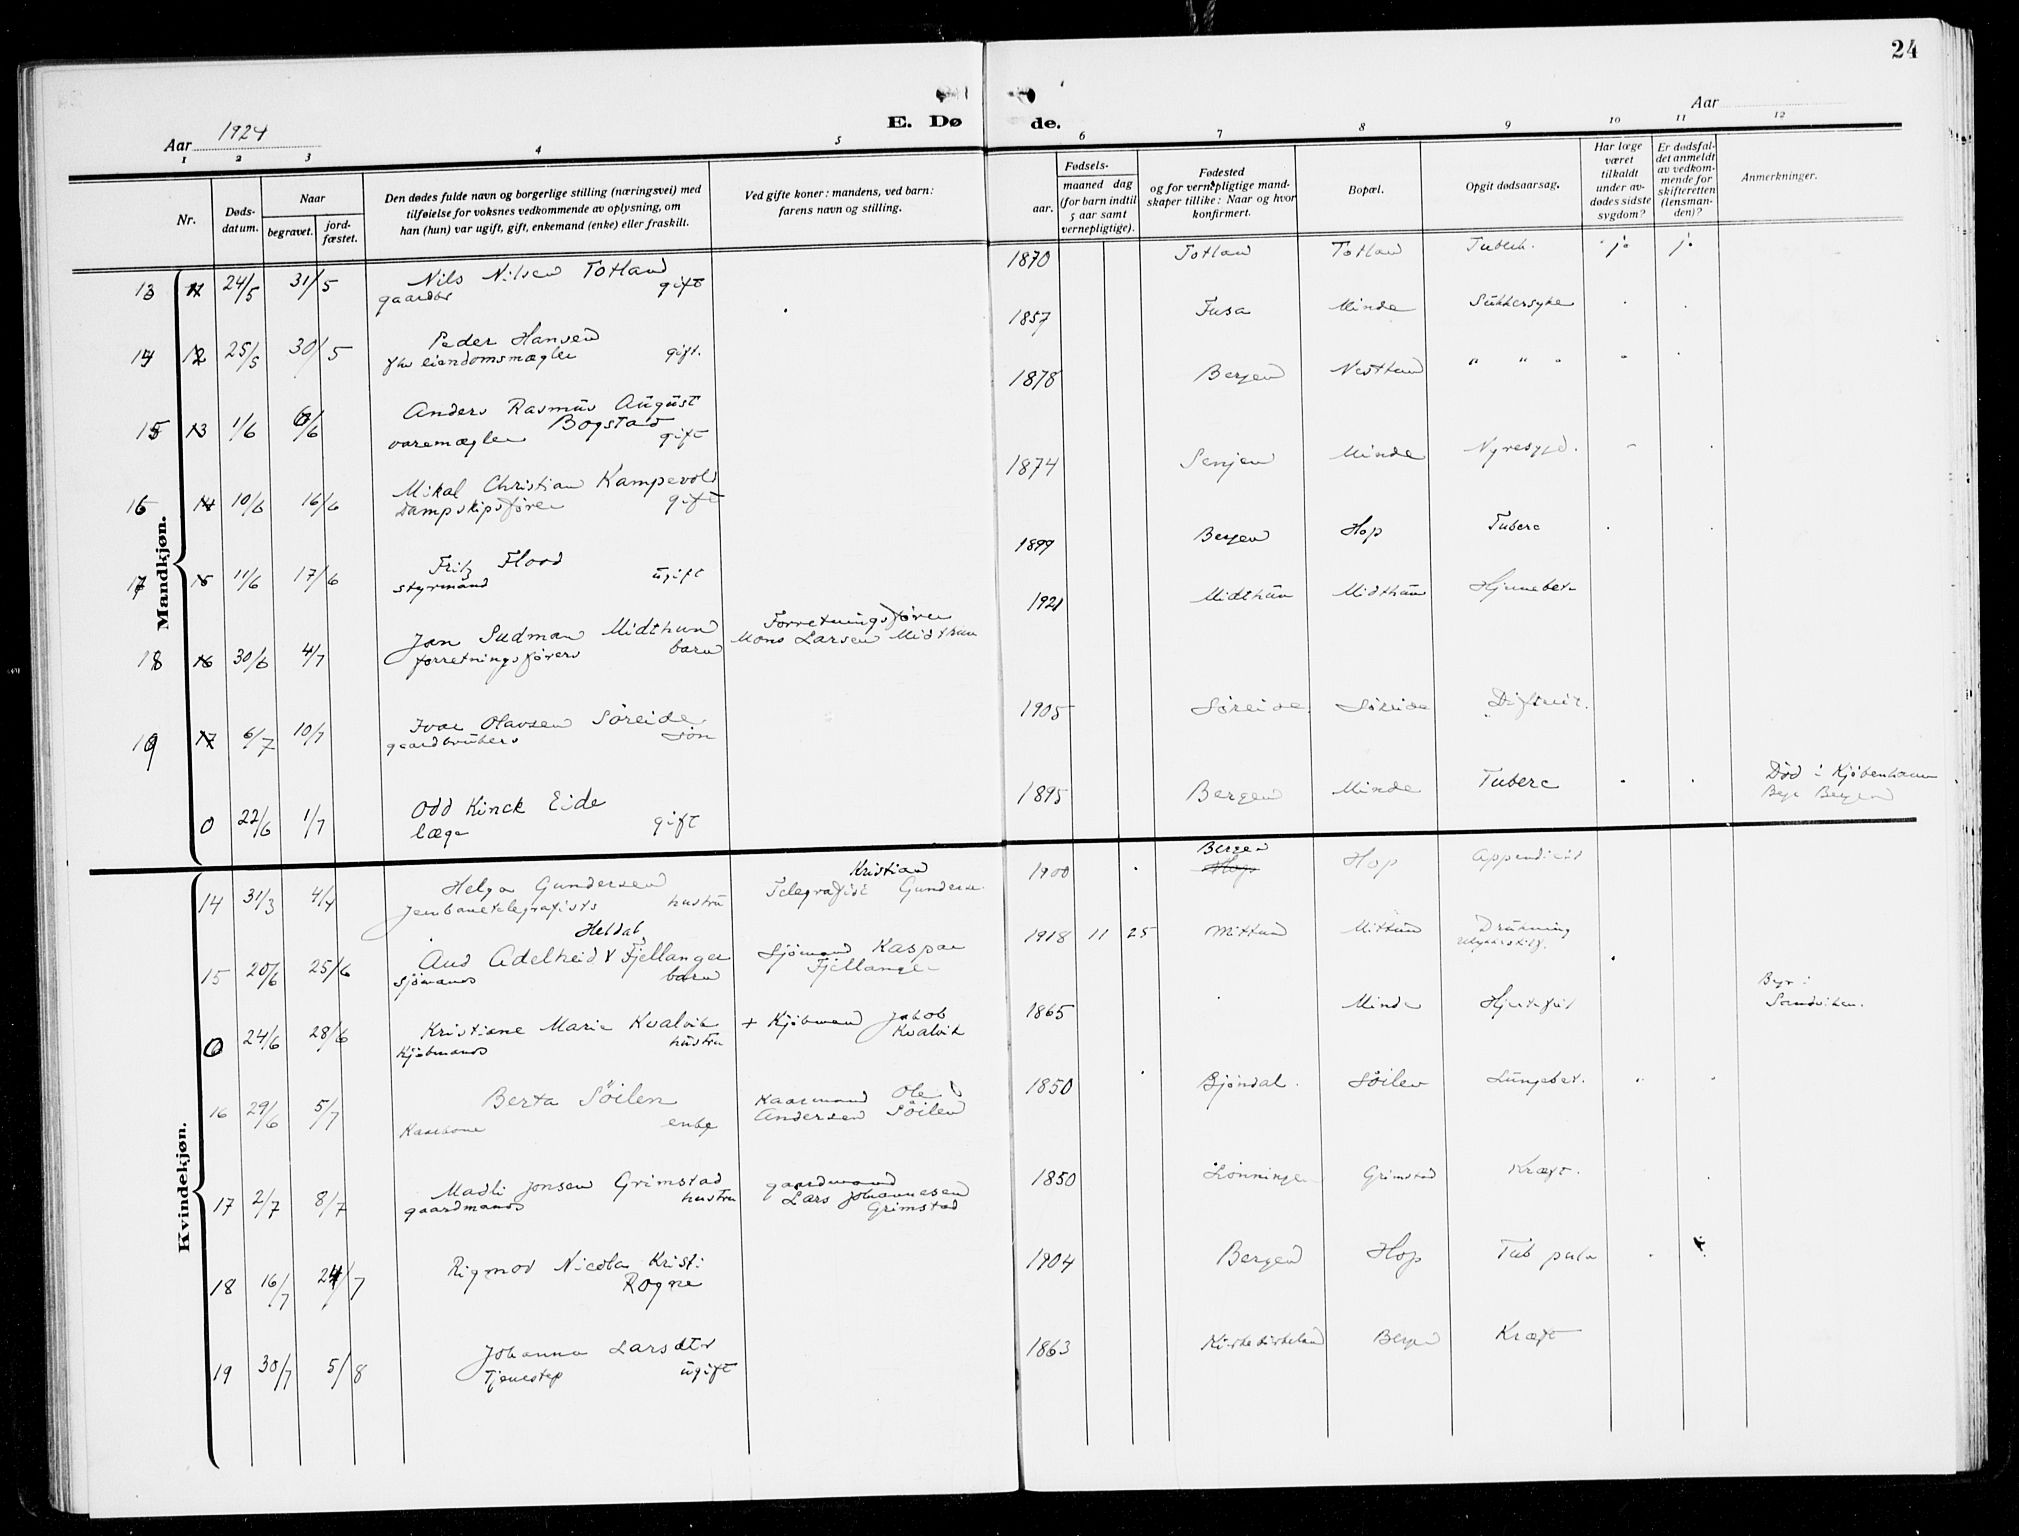 24
Aar 1924
E. Dø de.
Aar
1 2 3 4 5 6 7 8 9 10 11 12
Nr.
Døds-datum.
Naar
begravet.
jord-fæstet.
Den dødes fulde navn og borgerlige stilling (næringsvei) med
tilføielse for voksnes vedkommende av oplysning, om
han (hun) var ugift, gift, enkemand (enke) eller fraskilt.
Ved gifte koner: mandens, ved barn:
farens navn og stilling.
Fødsels-
aar.
maaned dag
(for barn indtil
5 aar samt
vernepligtige).
Fødested
og for vernepligtige mand-
skaper tillike: Naar og hvor
konfirmert.
Bopæl.
Opgit dødsaarsag.
Har læge
været
tilkaldt
under av-
dødes sidste
sygdom?
Er dødsfal-
det anmeldt
av vedkom-
mende for
skifteretten
(lensman-
den)?
Anmerkninger.
Mandkjøn.
13 11 24/5 31/5 Nils Nilsen Totland 1870 Totland Totland Tuberk. jo jo
gaardbr gift
14 12 25/5 30/5 Peder Hansen 1857 Fusa Minde Sukkersyke
fhv eiendomsmægler gift.
15 13 1/6 6/6 Anders Rasmus August 1878 Bergen Nesttun " " "
varemægler Bogstad gift
16 14 10/6 16/6 Mikal Christian Kampevold 1874 Senjen Minde Nyresygd.
Dampskipsfører gift
17 15 11/6 17/6 Fritz Flood 1899 Bergen Hop Tuberc
styrmand ugift
18 16 30/6 4/7 Jan Sudman Midthun Forretningsfører 1921 Midthun Midthun Hjernebet.
forretningsførers barn Mons Larsen Midthun
19 17 6/7 10/7 Ivar Olavsen Søreide 1905 Søreide Søreide Difterit.
gaardbrukers søn
0 22/6 1/7 Odd Kinck Eide 1895 Bergen Minde Tuberc Død i Kjøbenhavn
læge gift Begr Bergen
Kvindekjøn.
14 31/3 4/4 Helga Gundersen Kristian 1900 Bergen Hop Hop Appendicit
Jernbanetelegrafists hustru Telegrafist Gundersen
15 20/6 25/6 Aud Adelheid Heldal Fjellanger Sjømand Kaspar 1918 11 25 Mittun Mittun Drukning
sjømands barn Fjellanger
0 24/6 28/6 Kristiane Marie Kvalvik + Kjøbmand Jakob 1865 Minde Hjertefeil Begr i
Kjøbmands hustru Kvalvik Sandviken.
16 29/6 5/7 Berta Søilen Kaarmand Ole 1850 Bjøndal. Søilen Lungebet.
Kaarkone enke Andersen Søilen
17 2/7 8/7 Madli Jonsen Grimstad gaardmand 1850 Lønningen Grimstad Kræft.
gaardmands hustru Lars Johannesen
Grimstad
18 16/7 24/7 Rigmor Nicola Kristi 1904 Bergen Hop Tub pulm
Rogne
19 30/7 5/8 Johanna Larsdtr 1863 Kirkebirkeland Bergen Kræft
Tjenestep ugift